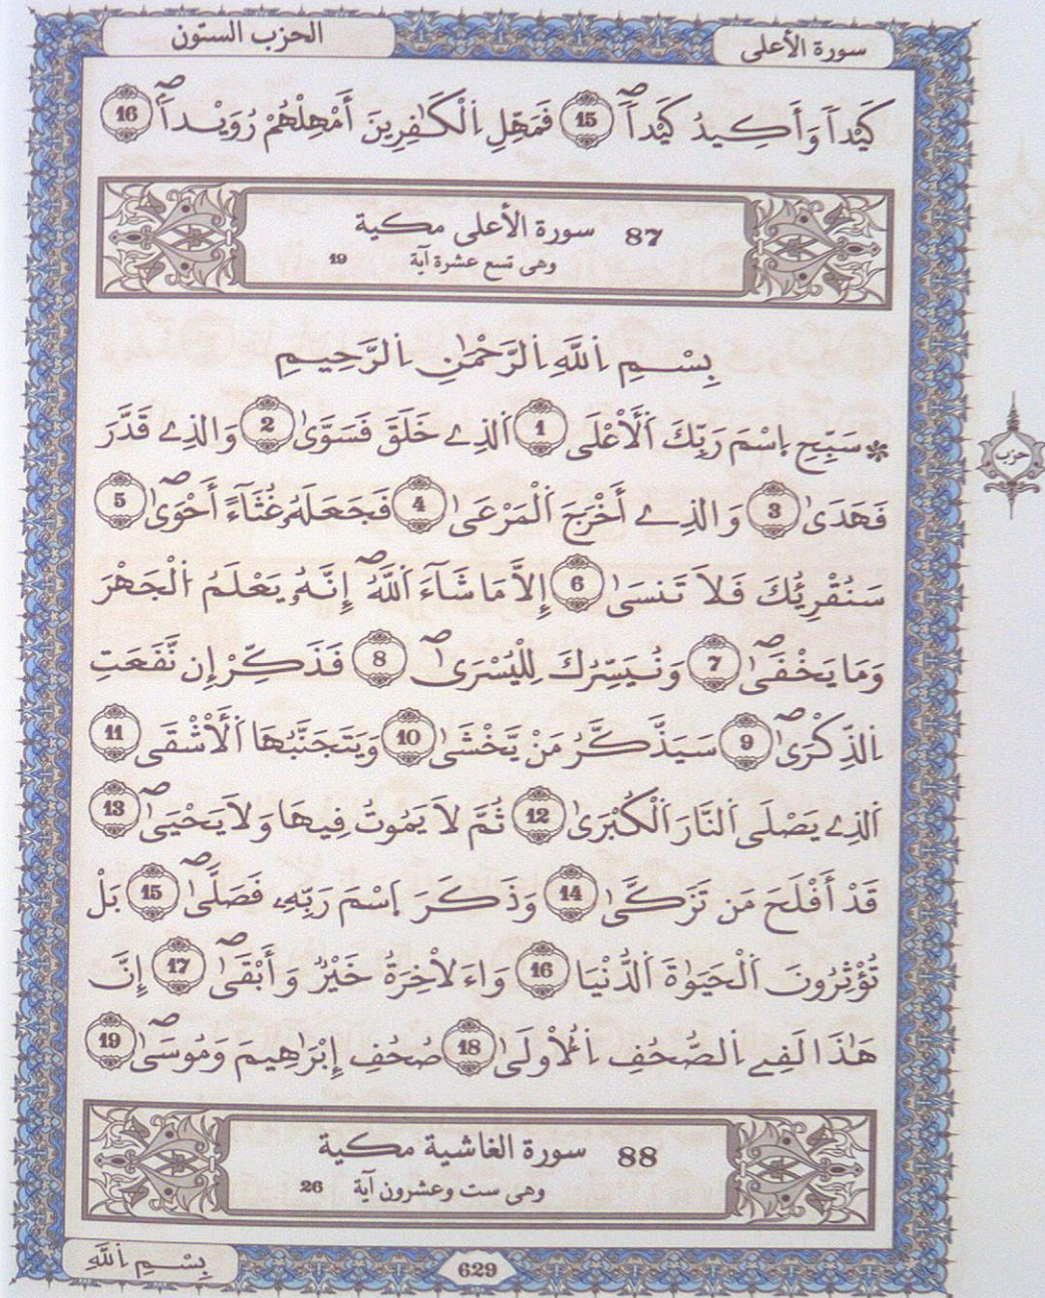 سورة الأعلى
الحزب الستون
كَيْداٗ وَأَكِيدُ كَيْداٗۖ 15 فَمَهِّلِ اِ۬لْكَٰفِرِينَ أَمْهِلْهُمْ رُوَيْداٗۖ 16
87 سورة الأعلى مكية
وهى تسع عشرة آية 19
بِسْمِ اِ۬للَّهِ اِ۬لرَّحْمَٰنِ اِ۬لرَّحِيمِ
* سَبِّحِ اِ۪سْمَ رَبِّكَ اَ۬لَأعْلَى 1 اَ۬لذِے خَلَقَ فَسَوّ۪ىٰ 2 وَالذِے قَدَّرَ
فَهَد۪ىٰ 3 وَالذِے أَخْرَجَ اَ۬لْمَرْع۪ىٰ 4 فَجَعَلَهُۥ غُثَآءً أَحْو۪ىٰۖ 5
سَنُقْرِئُكَ فَلَا تَنس۪ىٰ 6 إِلَّا مَا شَآءَ اَ۬للَّهُۖ إِنَّهُۥ يَعْلَمُ اُ۬لْجَهْرَ
وَمَا يَخْف۪ىٰۖ 7 وَنُيَسِّرُكَ لِلْيُسْر۪ىٰۖ 8 فَذَكِّرْ إِن نَّفَعَتِ
اِ۬لذِّكْر۪ىٰۖ 9 سَيَذَّكَّرُ مَنْ يَّخْش۪ىٰ 10 وَيَتَجَنَّبُهَا اَ۬لَأشْقَى 11
اَ۬لذِے يَصْلَى اَ۬لنَّارَ اَ۬لْكُبْر۪ىٰ 12 ثُمَّ لَا يَمُوتُ فِيهَا وَلَا يَحْي۪ىٰۖ 13
قَدْ أَفْلَحَ مَن تَزَكّ۪ىٰ 14 وَذَكَرَ اَ۪سْمَ رَبِّهِۦ فَصَلّ۪ىٰۖ 15 بَلْ
تُؤْثِرُونَ اَ۬لْحَيَوٰةَ اَ۬لدُّنْي۪ا 16 وَاءَلَاخِرَةُ خَيْرٞ وَأَبْق۪ىٰۖ 17 إِنَّ
هَٰذَا لَفِے اِ۬لصُّحُفِ اِ۬لُاول۪ىٰ 18 صُحُفِ إِبْرَٰهِيمَ وَمُوس۪ىٰۖ 19
حزب
88 سورة الغاشية مكية
وهى ست وعشرون آية 26
بِسْمِ اِ۬للَّهِ
629